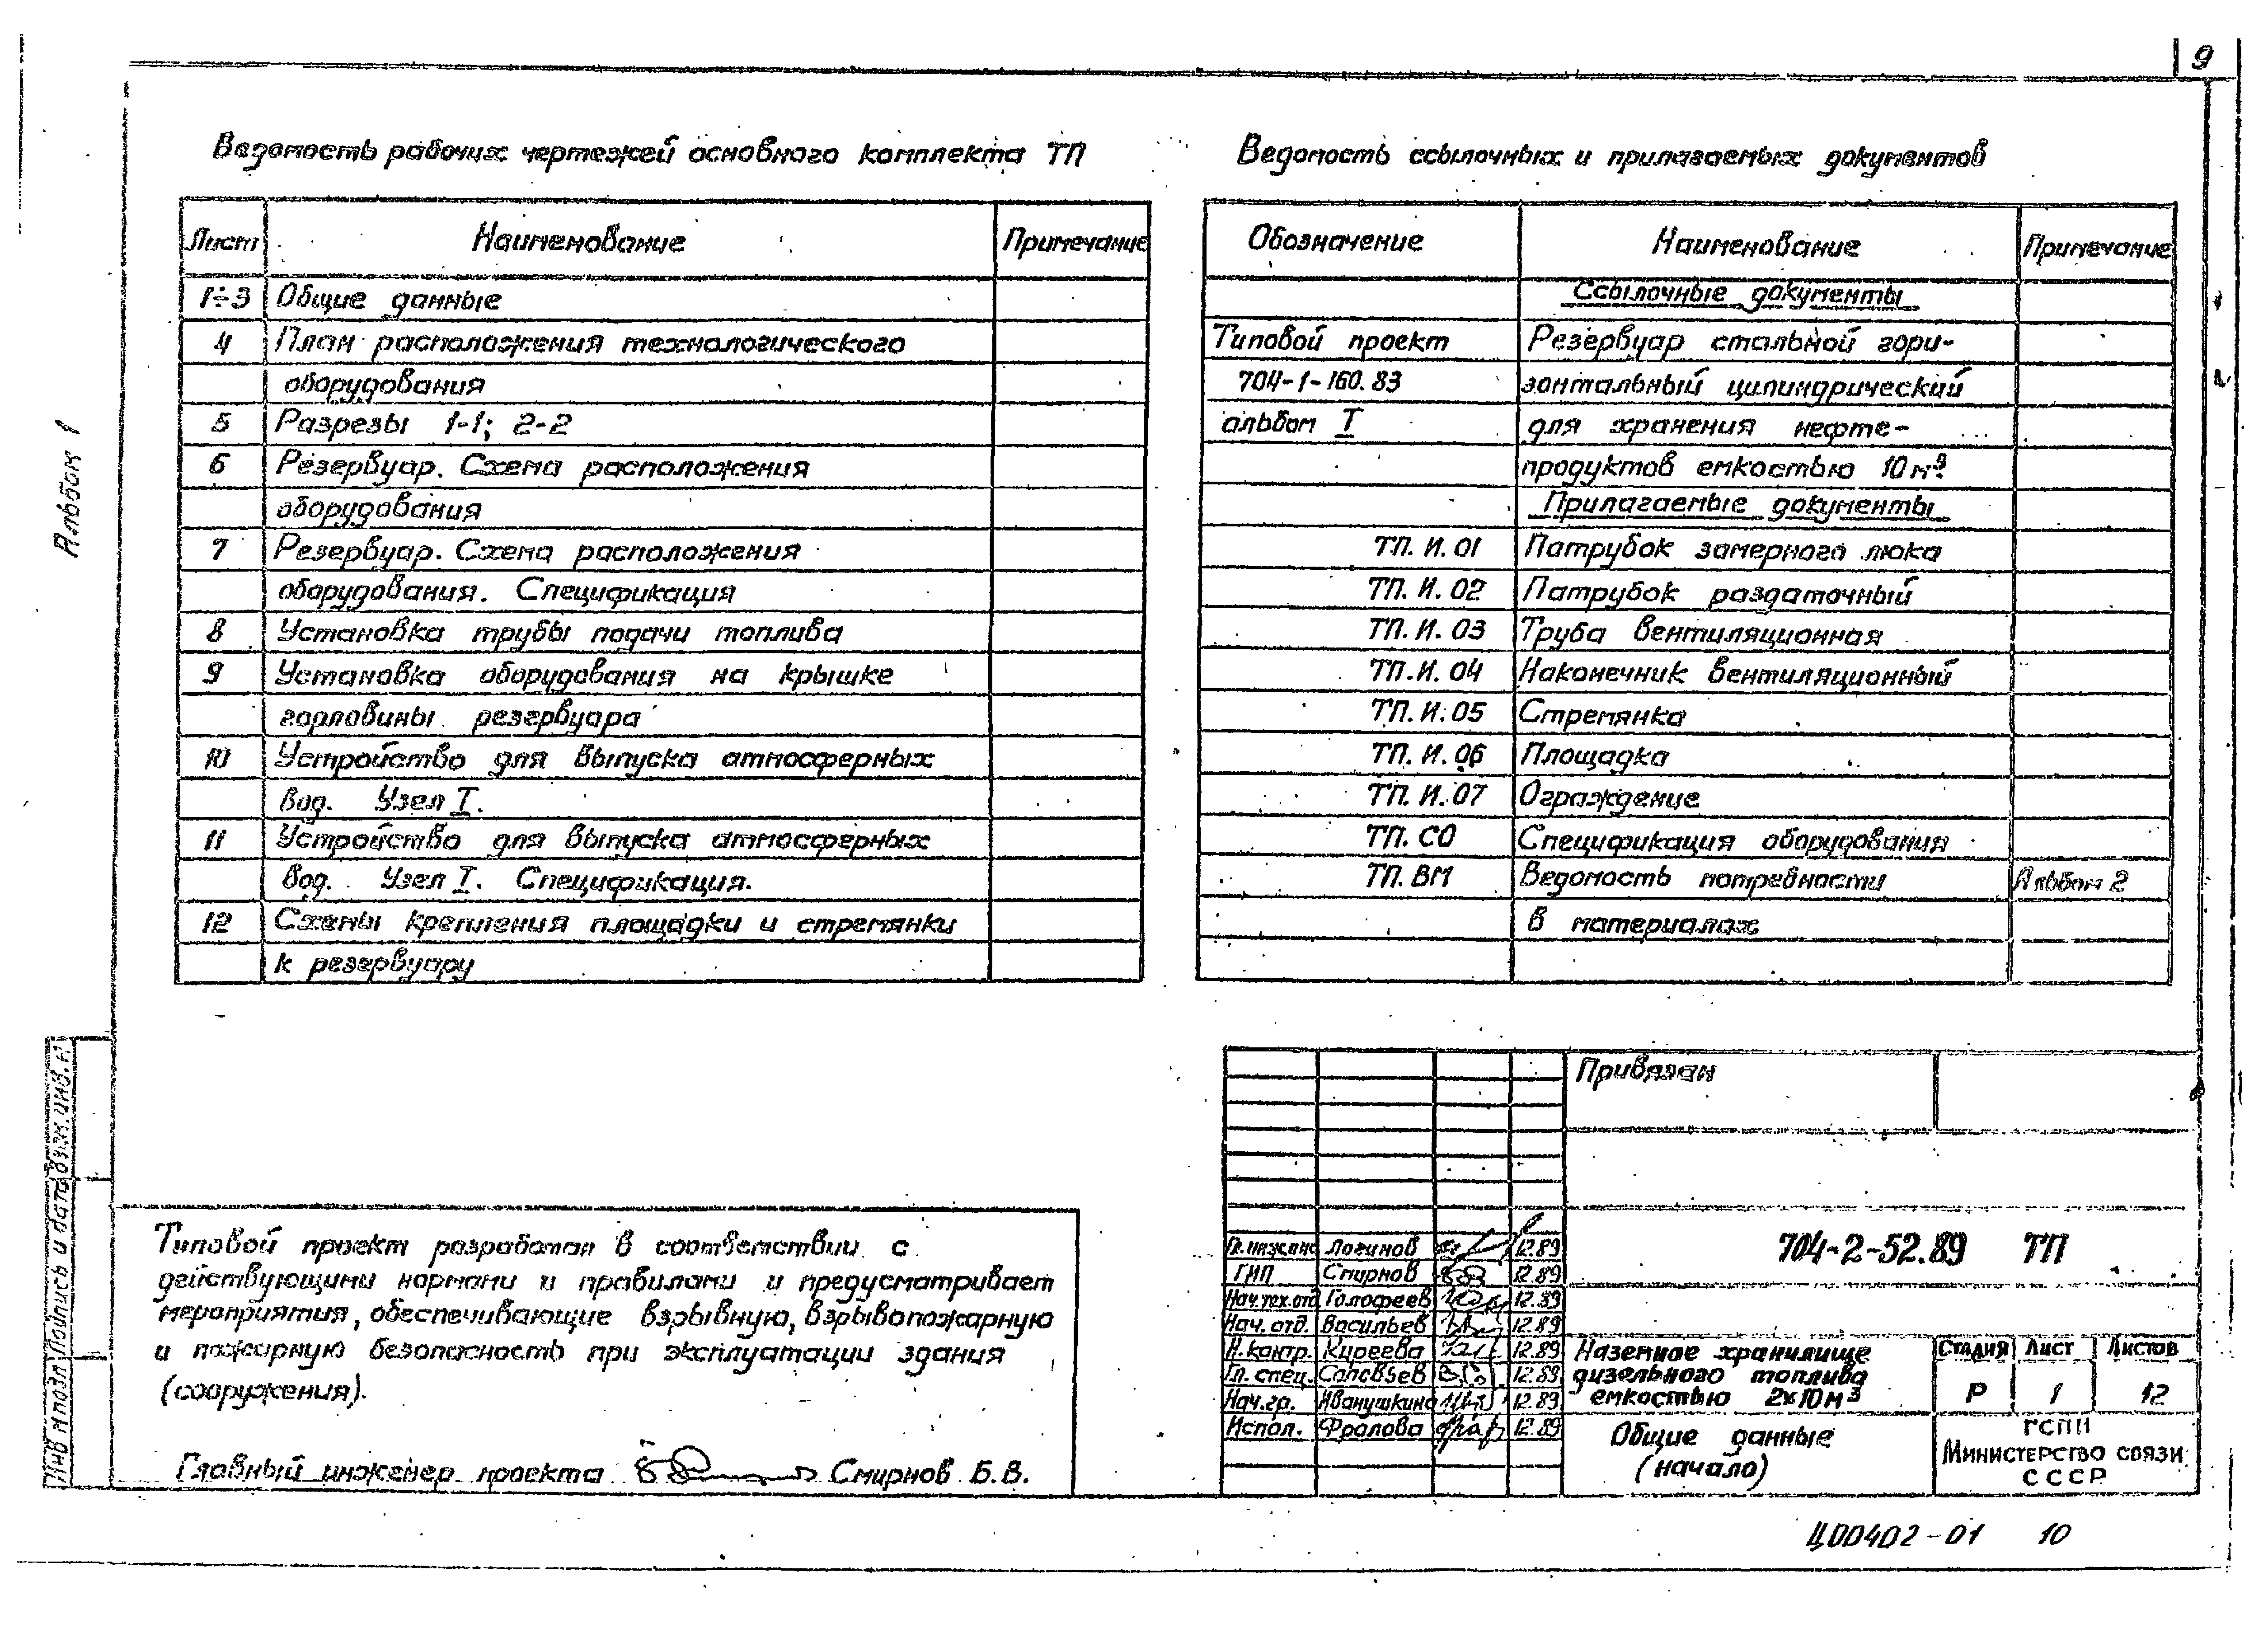 9
Альбом 1
Ведомость рабочих чертежей основного комплекта ТП
Лист Наименование Примечание
1÷3 Общие данные
4 План расположения технологического
оборудования
5 Разрезы 1-1; 2-2
6 Резервуар. Схема расположения
оборудования
7 Резервуар. Схема расположения
оборудования. Спецификация
8 Установка трубы подачи топлива
9 Установка оборудования на крышке
горловины резервуара
10 Устройство для выпуска атмосферных
вод. Узел I.
11 Устройство для выпуска атмосферных
вод. Узел I. Спецификация.
12 Схемы крепления площадки и стремянки
к резервуару
Ведомость ссылочных и прилагаемых документов
Обозначение Наименование Примечание
Ссылочные документы
Типовой проект Резервуар стальной гори-
704-1-160.83 зонтальный цилиндрический
альбом I для хранения нефте-
продуктов емкостью 10 м³
Прилагаемые документы
ТП. И. 01 Патрубок замерного люка
ТП. И. 02 Патрубок раздаточный
ТП. И. 03 Труба вентиляционная
ТП. И. 04 Наконечник вентиляционный
ТП. И. 05 Стремянка
ТП. И. 06 Площадка
ТП. И. 07 Ограждение
ТП. СО Спецификация оборудования
ТП. ВМ Ведомость потребности Альбом 2
в материалах
Типовой проект разработан в соответствии с
действующими нормами и правилами и предусматривает
мероприятия, обеспечивающие взрывную, взрывопожарную
и пожарную безопасность при эксплуатации здания
(сооружения).
Главный инженер проекта Смирнов Б.В.
Инв № подл Подпись и дата Взам.инв.№
Привязан
704-2-52.89 ТП
Логинов 12.89
ГИП Смирнов 12.89
Нач.тех.отд Голофеев 12.89
Нач. отд. Васильев 12.89
Н.контр. Киреева 12.89
Гл. спец. Соловьев 12.89
Нач.гр. Иванушкина 12.89
Испол. Фролова 12.89
Наземное хранилище
дизельного топлива
емкостью 2х10м³
Стадия Лист Листов
Р 1 12
Общие данные
(начало)
ГСПИ
Министерство связи
СССР
Ц00402-01 10